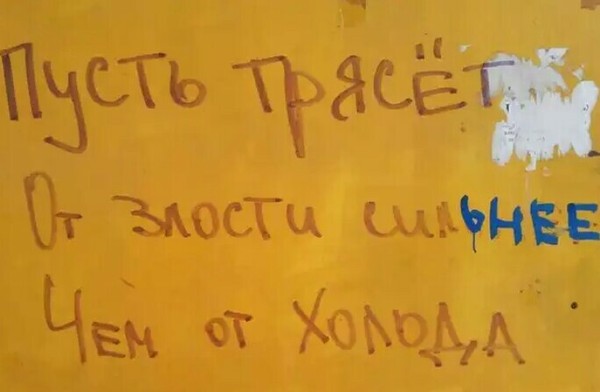 Пусть трясёт
От злости сильнее
Чем от холода